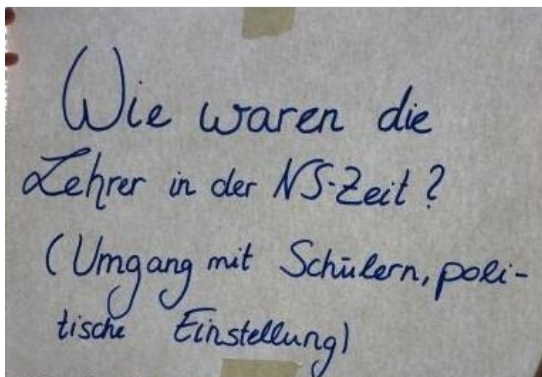 Wie waren die
Lehrer in der NS-Zeit?
(Umgang mit Schülern, poli-
tische Einstellung)